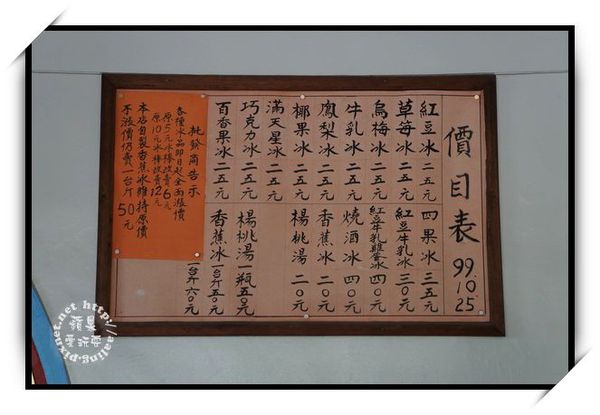 價目表 99.10.25
紅豆冰 二五元
草莓冰 二五元
烏梅冰 二五元
牛乳冰 二五元
鳳梨冰 二五元
椰果冰 二五元
滿天星冰 二五元
巧克力冰 二五元
百香果冰 二五元
四果冰 三五元
紅豆牛乳冰 三〇元
紅豆牛乳雞蛋冰 四〇元
燒酒冰 四〇元
香蕉冰 二〇元
楊桃湯 二〇元
楊桃湯 一瓶五〇元
香蕉冰 一台斤五〇元
一台斤六〇元
批發商告示
各種冰品即日起全面漲價
原5元冰棒改賣6元
原10元冰棒改賣12元
本店自製香蕉冰維持原價
不漲價仍賣一台斤50元
http://aajing.pixnet.net